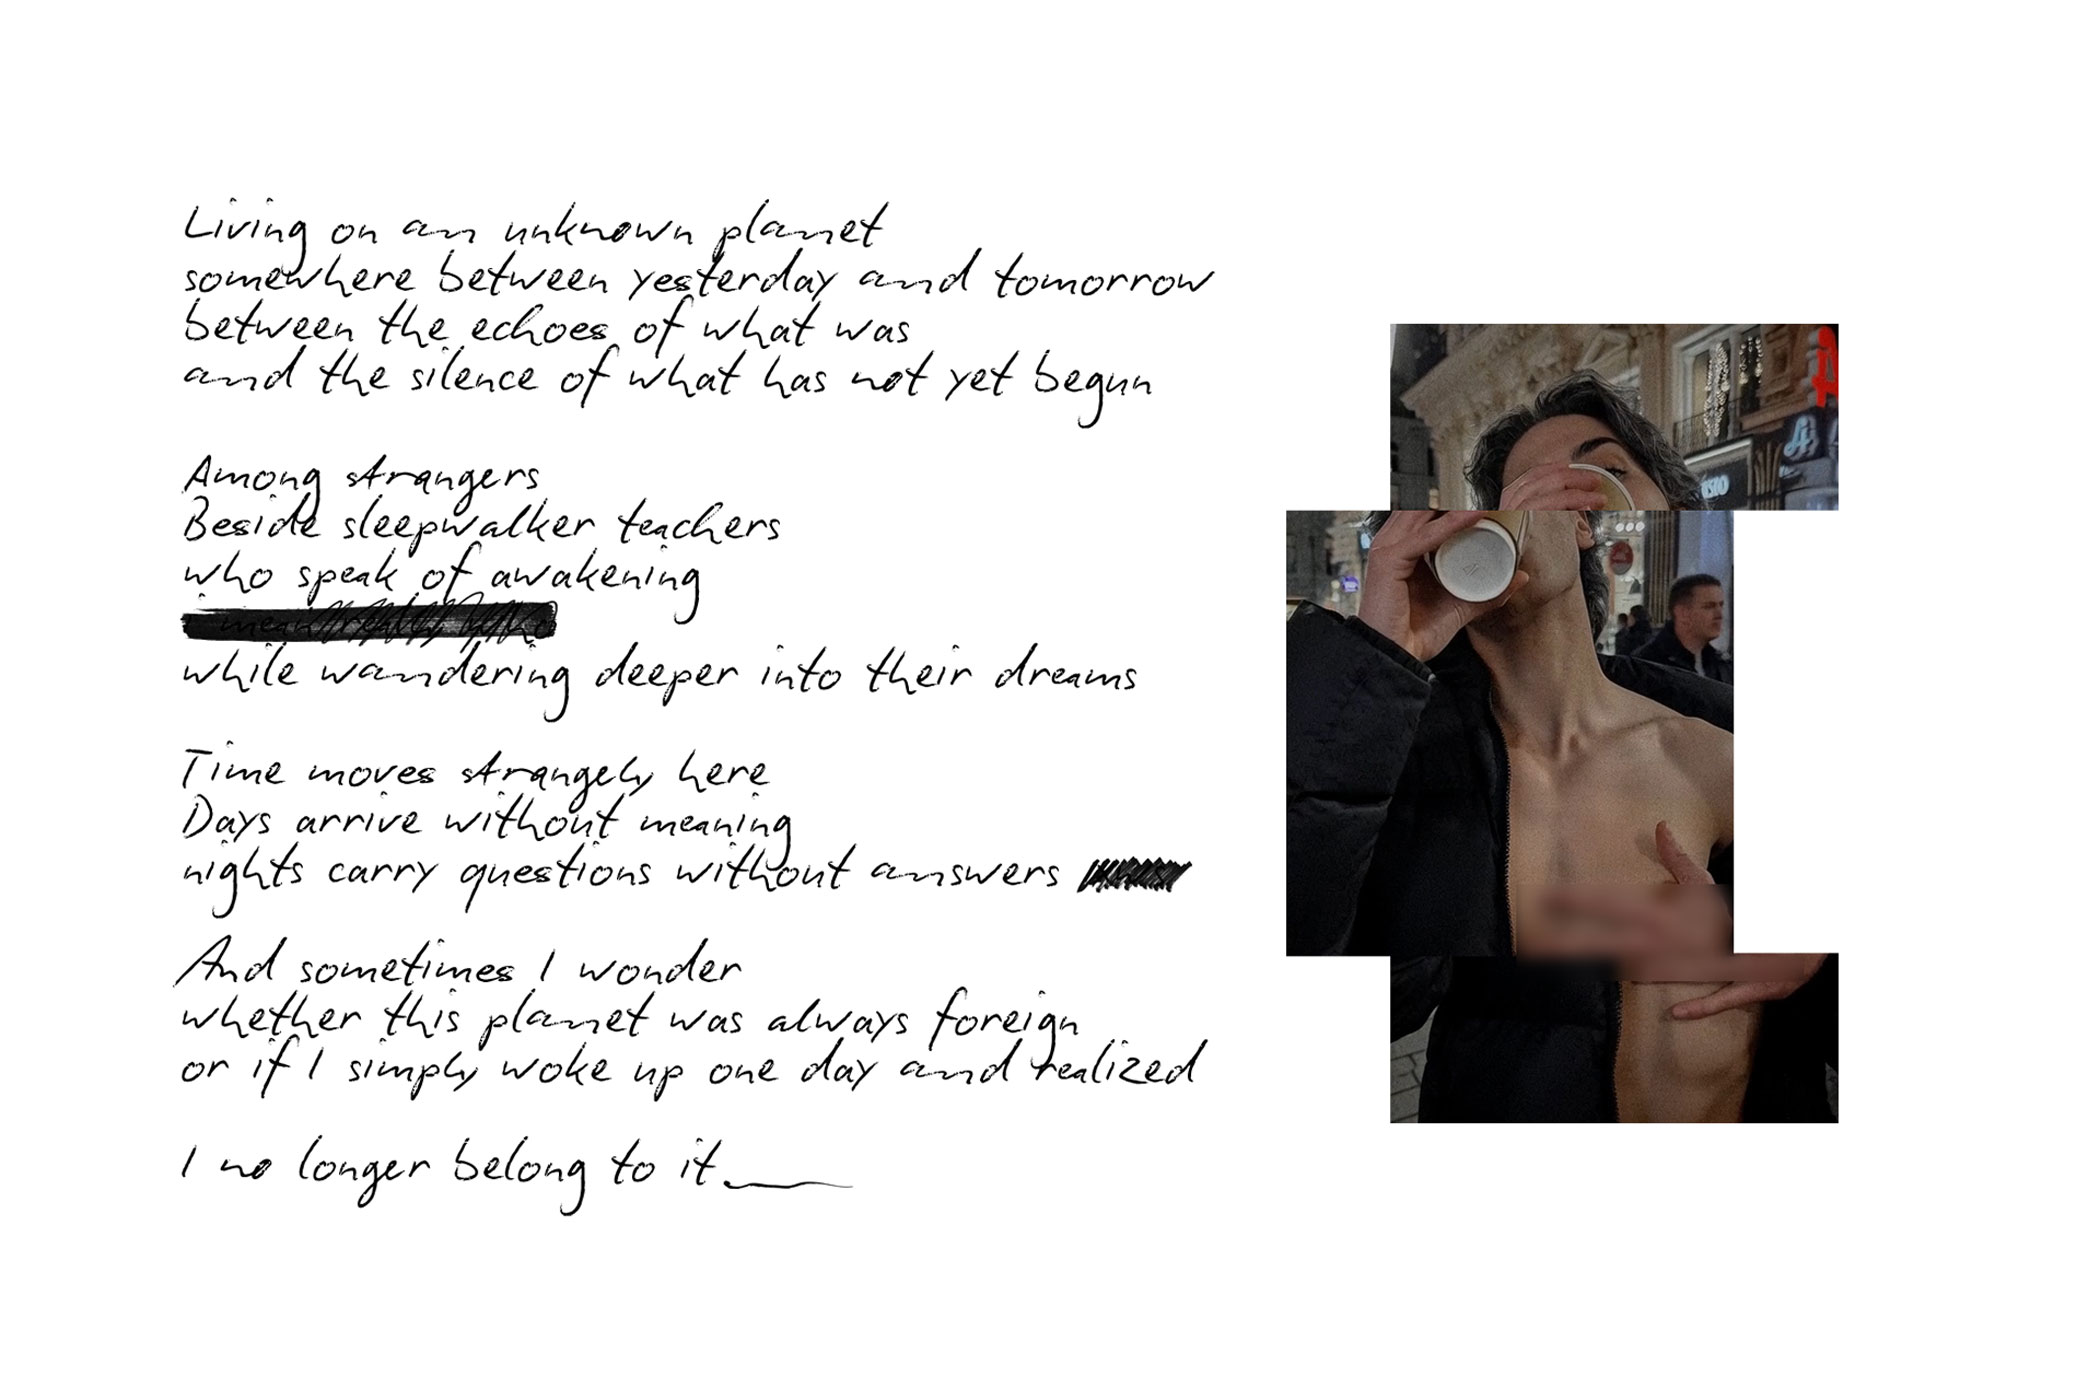 Living on an unknown planet
somewhere between yesterday and tomorrow
between the echoes of what was
and the silence of what has not yet begun
Among strangers
Beside sleepwalker teachers
who speak of awakening
while wandering deeper into their dreams
Time moves strangely here
Days arrive without meaning
nights carry questions without answers
And sometimes I wonder
whether this planet was always foreign
or if I simply woke up one day and realized
I no longer belong to it